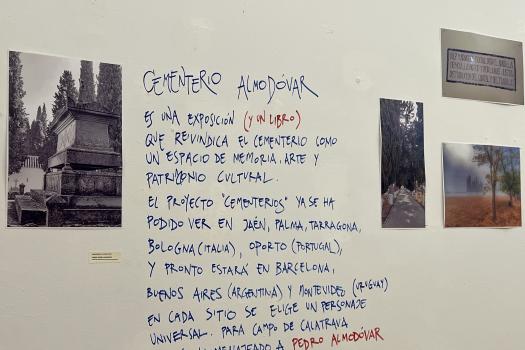 CEMENTERIO ALMODÓVAR
ES UNA EXPOSICIÓN (Y UN LIBRO)
QUE REIVINDICA EL CEMENTERIO COMO
UN ESPACIO DE MEMORIA, ARTE Y
PATRIMONIO CULTURAL.
EL PROYECTO "CEMENTERIOS" YA SE HA
PODIDO VER EN JAÉN, PALMA, TARRAGONA,
BOLOGNA (ITALIA), OPORTO (PORTUGAL),
Y PRONTO ESTARÁ EN BARCELONA,
BUENOS AIRES (ARGENTINA) Y MONTEVIDEO (URUGUAY)
EN CADA SITIO SE ELIGE UN PERSONAJE
UNIVERSAL. PARA CAMPO DE CALATRAVA
A PEDRO ALMODÓVAR